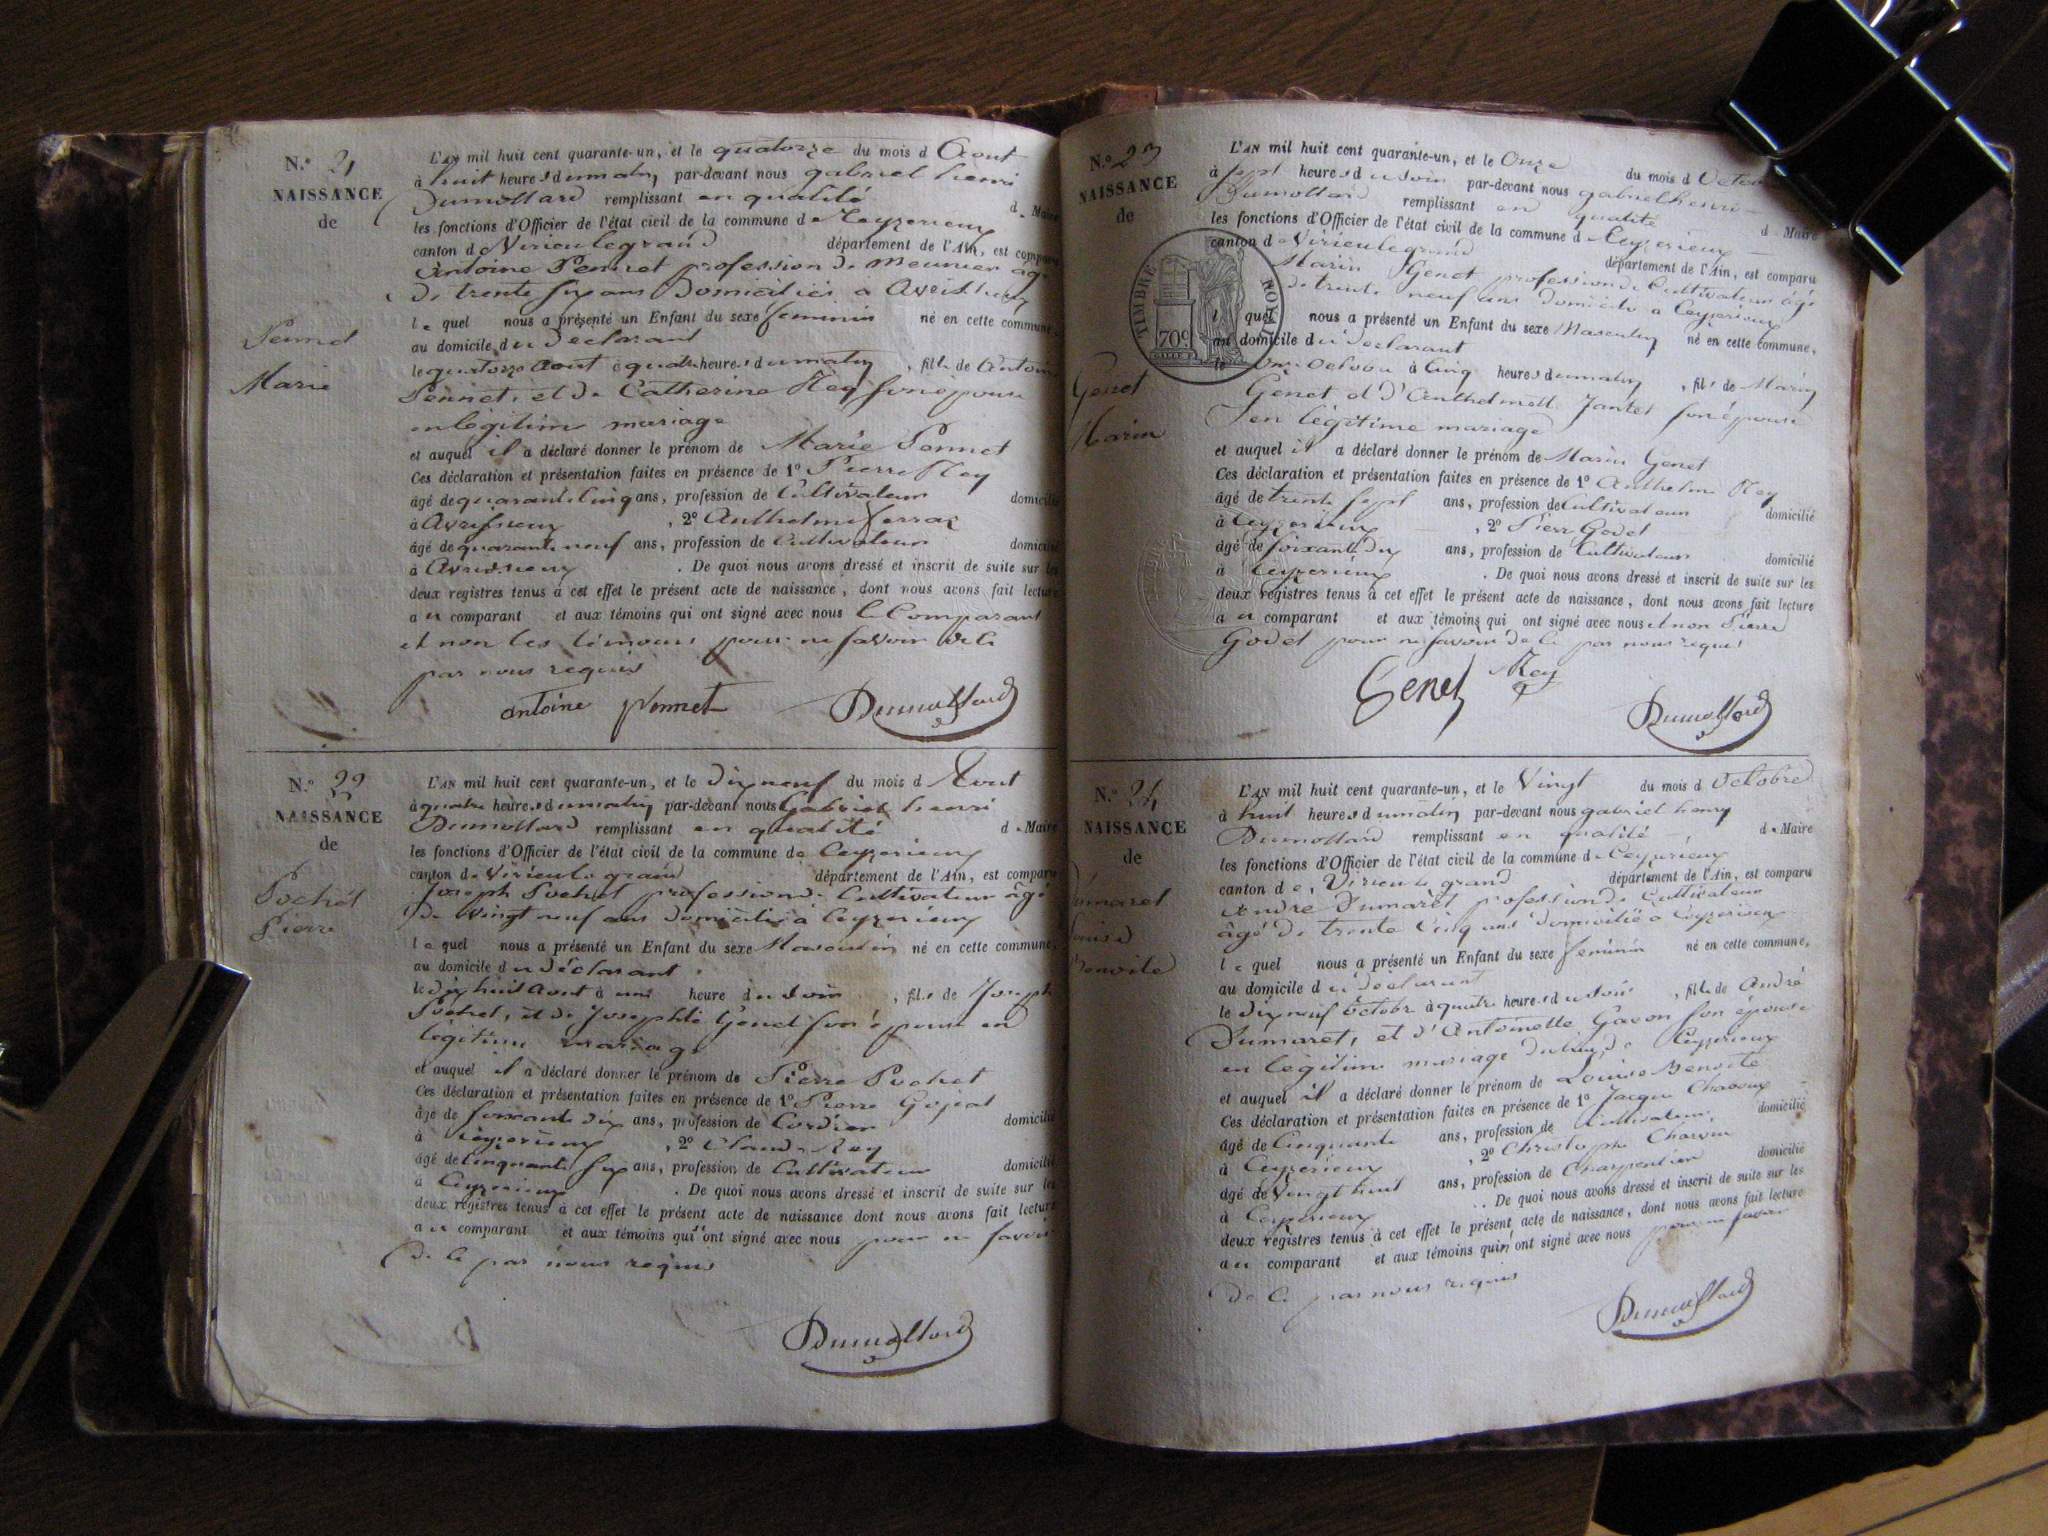 N.º 21
NAISSANCE
de
Pennet
Marie
L'AN mil huit cent quarante-un, et le quatorze du mois d Aout
à huit heures du matin par-devant nous gabriel henri
Dumollard remplissant en qualité de Maire
les fonctions d'Officier de l'état civil de la commune de Ceyzerieux
canton de Virieulegrand département de l'Ain, est comparu
Antoine Pennet profession de Meunier âgé
de trente six ans Domicilié à Avrissieux
le quel nous a présenté un Enfant du sexe feminin né en cette commune,
au domicile du declarant
le quatorze aout à quatre heures du matin, fille de Antoine
Pennet, et de Catherine Rey son épouse
en légitime mariage
et auquel il a déclaré donner le prénom de Marie Pennet
Ces déclaration et présentation faites en présence de 1º Pierre Rey
âgé de quarante cinq ans, profession de Cultivateur domicilié
à Avrissieux, 2º Anthelme ferraz
âgé de quarante neuf ans, profession de Cultivateur domicilié
à Avrissieux. De quoi nous avons dressé et inscrit de suite sur les
deux registres tenus à cet effet le présent acte de naissance, dont nous avons fait lecture
au comparant et aux témoins qui ont signé avec nous le Comparant
et non les témoins pour ne savoir de ce
par nous requis
antoine pennet Dumollard
N.º 22
NAISSANCE
de
Pochet
Pierre
L'AN mil huit cent quarante-un, et le dix neuf du mois d Aout
à quatre heures du matin par-devant nous Gabriel henri
Dumollard remplissant en qualité de Maire
les fonctions d'Officier de l'état civil de la commune de Ceyzerieux
canton de Virieule grand département de l'Ain, est comparu
Joseph Pochet profession de Cultivateur âgé
de vingt neuf ans domicilié à Ceyzerieux
le quel nous a présenté un Enfant du sexe Masculin né en cette commune,
au domicile du déclarant
le dix huit Aout à une heure du soir, fils de Joseph
Pochet, et de Josephte Genet son épouse en
légitime mariage
et auquel il a déclaré donner le prénom de Pierre Pochet
Ces déclaration et présentation faites en présence de 1º Pierre Gojeat
âgé de soixante dix ans, profession de Cordier domicilié
à Ceyzerieux, 2º Claude Rey
âgé de Cinquante six ans, profession de Cultivateur domicilié
à Ceyzerieux. De quoi nous avons dressé et inscrit de suite sur les
deux registres tenus à cet effet le présent acte de naissance dont nous avons fait lecture
au comparant et aux témoins qui n'ont signé avec nous pour ne savoir
de ce par nous requis
Dumollard
N.º 23
NAISSANCE
de
TIMBRE ROYAL
70c
Genet
Marin
L'AN mil huit cent quarante-un, et le Onze du mois d Octobre
à sept heures du soir par-devant nous gabriel henri
Dumollard remplissant en qualité de Maire
les fonctions d'Officier de l'état civil de la commune d Ceyzerieux
canton de Virieulegrand département de l'Ain, est comparu
Marin Genet profession de Cultivateur âgé
de trente neuf ans domicilié à Ceyzerieux
l quel nous a présenté un Enfant du sexe Masculin né en cette commune,
au domicile du declarant
le Onze Octobre à Cinq heures du matin, fils de Marin
Genet et d'Anthelmette Jantet son épouse
en légitime mariage
et auquel il a déclaré donner le prénom de Marin Genet
Ces déclaration et présentation faites en présence de 1º Anthelme Rey
âgé de trente sept ans, profession de Cultivateur domicilié
à Ceyzerieux, 2º Pierre Godet
âgé de soixante dix ans, profession de Cultivateur domicilié
à Ceyzerieux. De quoi nous avons dressé et inscrit de suite sur les
deux registres tenus à cet effet le présent acte de naissance, dont nous avons fait lecture
au comparant et aux témoins qui ont signé avec nous et non Pierre
Godet pour ne savoir de ce par nous requis
Genet Rey Dumollard
N.º 24
NAISSANCE
de
Dumaret
Louise
Benoite
L'AN mil huit cent quarante-un, et le Vingt du mois d Octobre
à huit heures du matin par-devant nous gabriel henry
Dumollard remplissant en qualité de Maire
les fonctions d'Officier de l'état civil de la commune de Ceyzerieux
canton de Virieule grand département de l'Ain, est comparu
André Dumaret profession de Cultivateur
âgé de trente Cinq ans domicilié à Ceyzerieux
le quel nous a présenté un Enfant du sexe feminin né en cette commune,
au domicile du déclarant
le dix neuf Octobre à quatre heures du soir, fille de André
Dumaret, et d'Antoinette Gacon son épouse
en légitime mariage de Ceyzerieux
et auquel il a déclaré donner le prénom de Louise Benoite
Ces déclaration et présentation faites en présence de 1º Jacques Chavoux
âgé de Cinquante ans, profession de Cultivateur domicilié
à Ceyzerieux, 2º Christophe Charvin
âgé de Vingt huit ans, profession de Charpentier domicilié
à Ceyzerieux. De quoi nous avons dressé et inscrit de suite sur les
deux registres tenus à cet effet le présent acte de naissance, dont nous avons fait lecture
au comparant et aux témoins qui n'ont signé avec nous pour ne savoir
de ce par nous requis
Dumollard